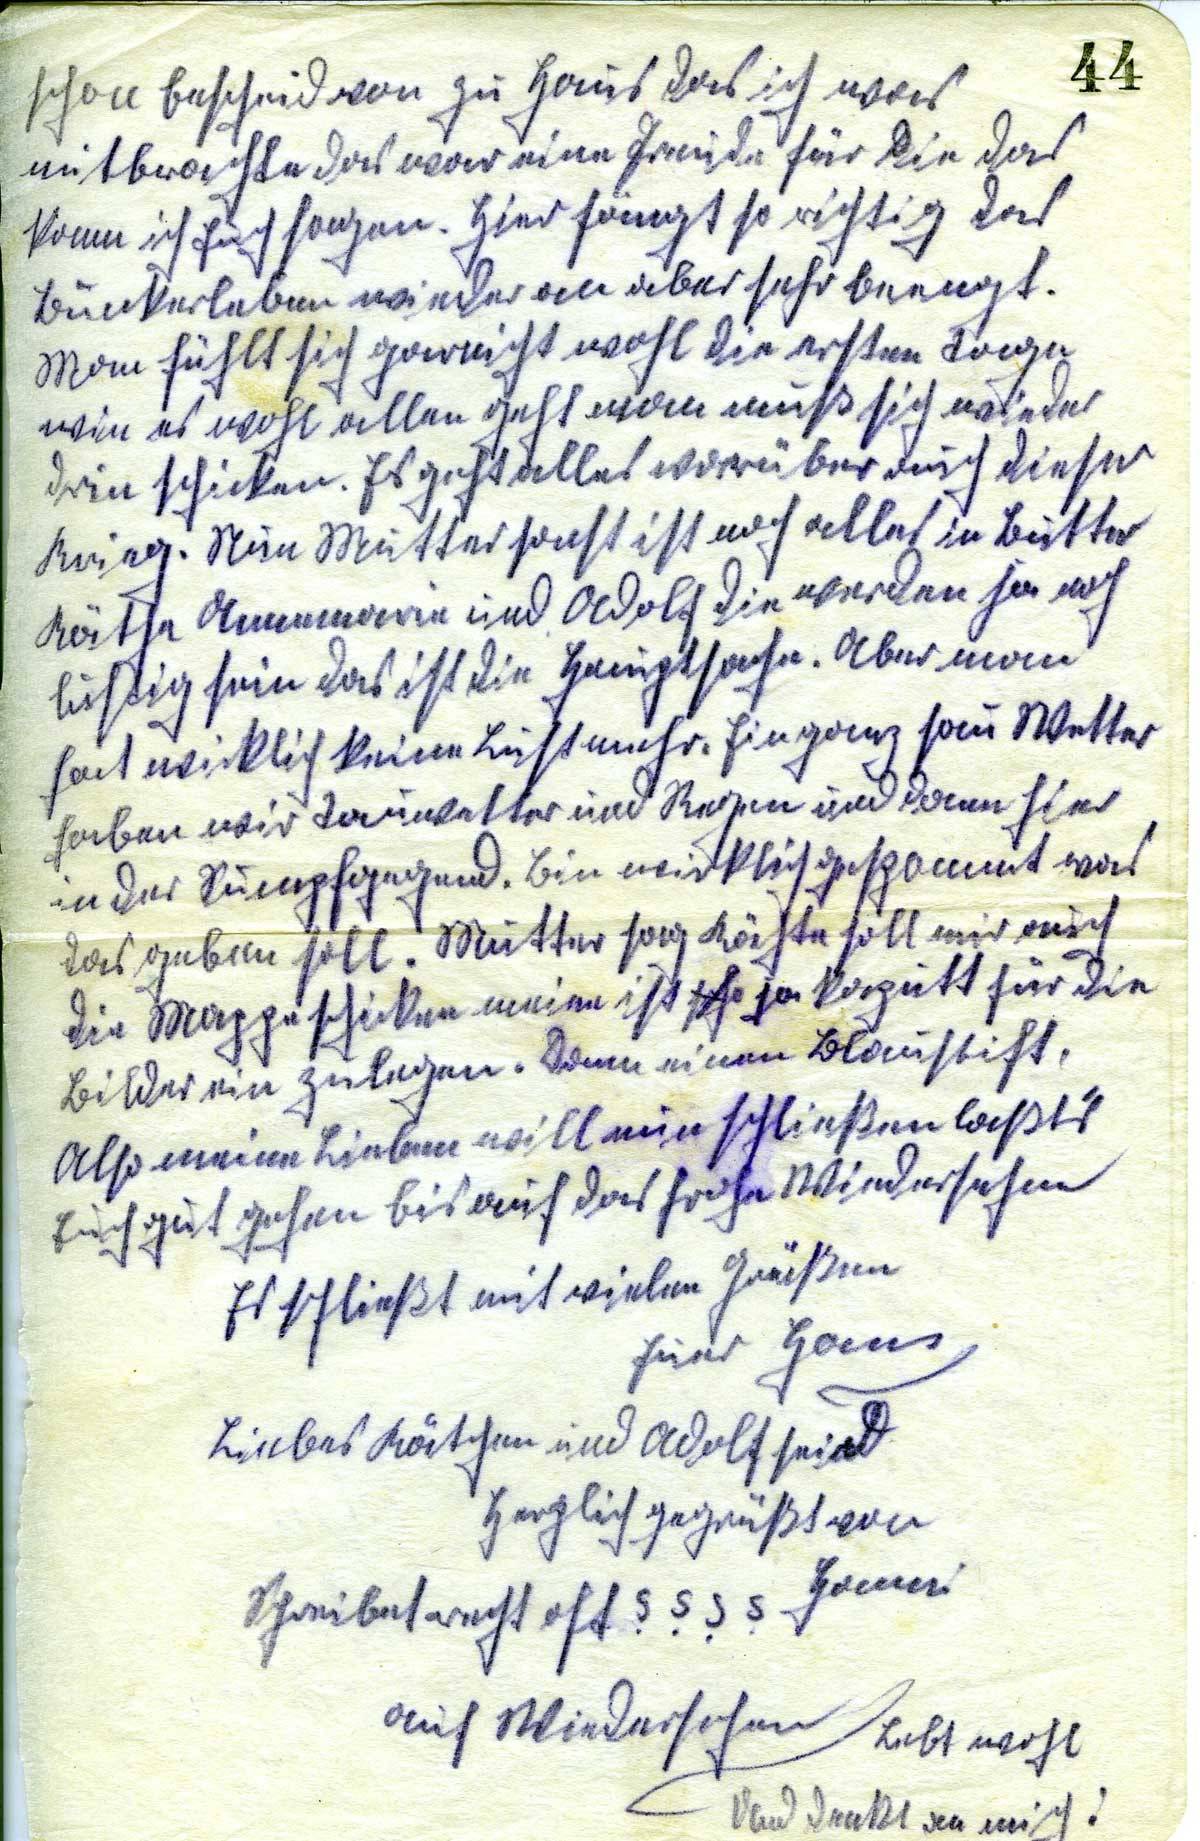 44
schon bescheid von zu Haus das ich was
mitbrachte das war eine Freude für Die das
kann ich Euch sagen. Hier fängt so richtig das
Bunkerleben wieder an aber sehr beengt.
Man fühlt sich garnicht wohl die ersten Tage
wie es wohl allen geht man muß sich wieder
drin schicken. Es geht alles vorrüber auch dieser
Krieg. Nun Mutter sonst ist noch alles in Butter
Käthe Annemarie und Adolf die werden ja noch
lustig sein das ist die Hauptsache. Aber man
hat wirklich keine Lust mehr. Ein ganz sau Wetter
haben wir Tauwetter und Regen und dann hier
in der Sumpfgegend. Bin wirklich gespannt was
das geben soll. Mutter sag Käthe soll mir auch
die Mappe schicken meine ist ja kaputt für die
Bilder ein zulegen. Dann einen Blaustift.
Also meine Lieben will nun schließen laßt's
Euch gut gehen bis auf das frohe Wiedersehen
Es schließt mit vielen Grüßen
Euer Hans
Liebes Kätchen und Adolf seid
Herzlich gegrüßt von
Schreibet recht oft Hanni
auf Wiedersehen Lebt wohl
Und denkt an mich!